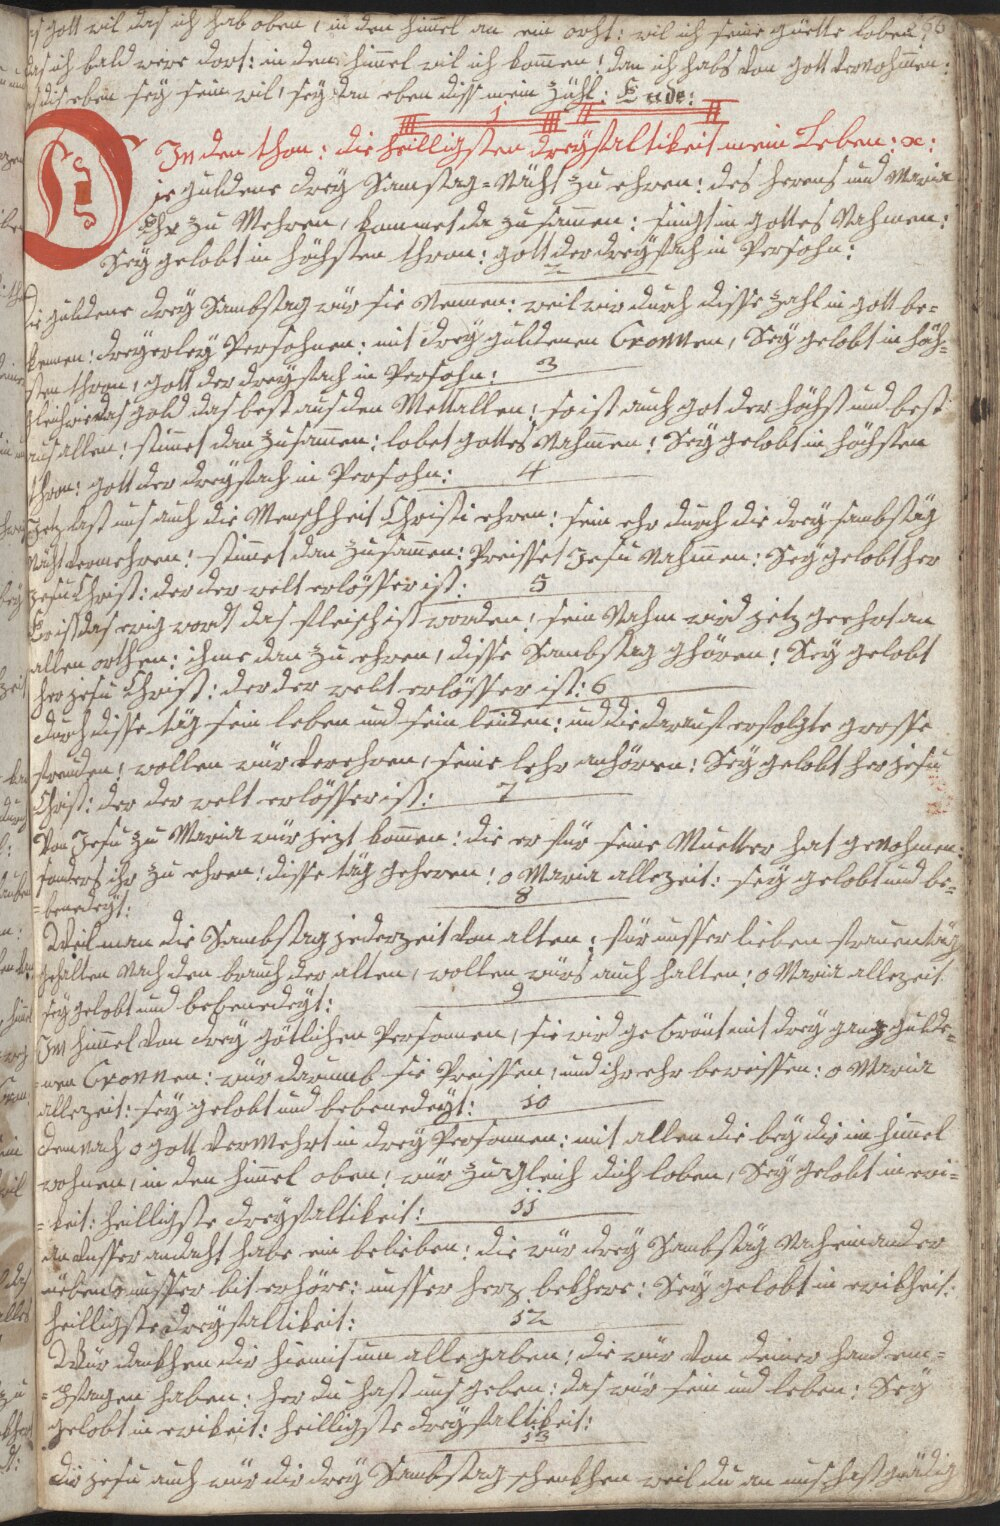 gott wil das ich hab oben / in den himel an ein orht: wil ich seine güette loben /
das ich bald were dort: in den himel wil ich komen / dan ich habs von gott vernohmen:
dis eben sey sein wil / sey dan eben diss mein zühl: Ende:
1
In den thon: die heilligsten dreyfaltikeit mein Leben: x:
Die guldene drey Samstag=Nächt zu ehren: des herens und Maria
Ehr zu Mehren / kommet da zusamen: singt in gottes Nahmen:
Sey gelobt in höchsten thron: gott der dreyfach in Persohn:
2
Die guldene drey Sambstag wür sie Nennen: weil wir durch disse zahl in gott be=
kennen: dreyerley Persohnen: mit drey guldenen Cronnen / Sey gelobt in höch=
sten thron / gott der dreyfach in Persohn: 3
gleich wie das gold das best aus den Mettallen: so ist auch got der höchst und best
aus allen / stimet dan zusamen: lobet gottes Nahmen / Sey gelobt in höchsten
thron: gott der dreyfach in Persohn: 4
Jetz last uns auch die Menschheit Christi ehren: sein ehr durch die drey sambstäg
Nächt vermehren / stimmet dan zusamen: Preisset Jesu Nahmen: Sey gelobt her
Jesu Christ: der der welt erlösser ist: 5
Er ist das ewig wordt das fleisch ist worden / sein Nahm wird jetz geehrt an
allen orthen: ihme dan zu ehren / disse Sambstag ghören / Sey gelobt
her jesu Christ: der der welt erlösser ist: 6
durch disse täg sein leben und sein leiden: und die darauf erfolgte grosse
freuden / wollen wür verehren / seine lehr anhören: Sey gelobt her jesu
Christ: der der welt erlösser ist: 7
Von Jesu zu Maria wür jezt komen: die er für seine Muetter hat genohmen:
sonders ihr zu ehren: disse täg geheren / o Maria allezeit: sey gelobt und be=
=benedeyt:
8
Weil man die Sambstag jederzeit von alten: für unsser lieben frauen täg
gehalten Nach den brauch der alten / wollen würs auch halten: o Maria allezeit
sey gelobt und bebenedeyt: 9
Im himel von drey götlichen Personnen / sie wird gecrönt mit drey ganz gulde=
=nen Cronnen: wür darumb sie Preissen / und ihr ehr beweissen: o Maria
allezeit: sey gelobt und bebenedeyt: 10
demnach o gott vermehrt in drey Persohnen: mit allen die bey dir im himel
wohnen / in den himel oben / wür zugleich dich loben / Sey gelobt in ewi=
=keit: heilligste dreyfaltikeit: 11
an unsser andacht habe ein belieben: die wür drey Sambstäg Nach einander
üeben o unsser bit erhöre: unsser herz bekhere: Sey gelobt in ewikheit:
heilligste dreyfaltikeit: 12
Wür dankhen dir hiemit um alle gaben: die wür von deiner hand em=
=pfangen haben: her du hast uns geben: das wür sein und leben: Sey
gelobt in ewikeit: heilligste dreyfaltikeit:
13
Dir jesu auch wür die drey Sambstag schenkhen weil du an uns hast gnädig